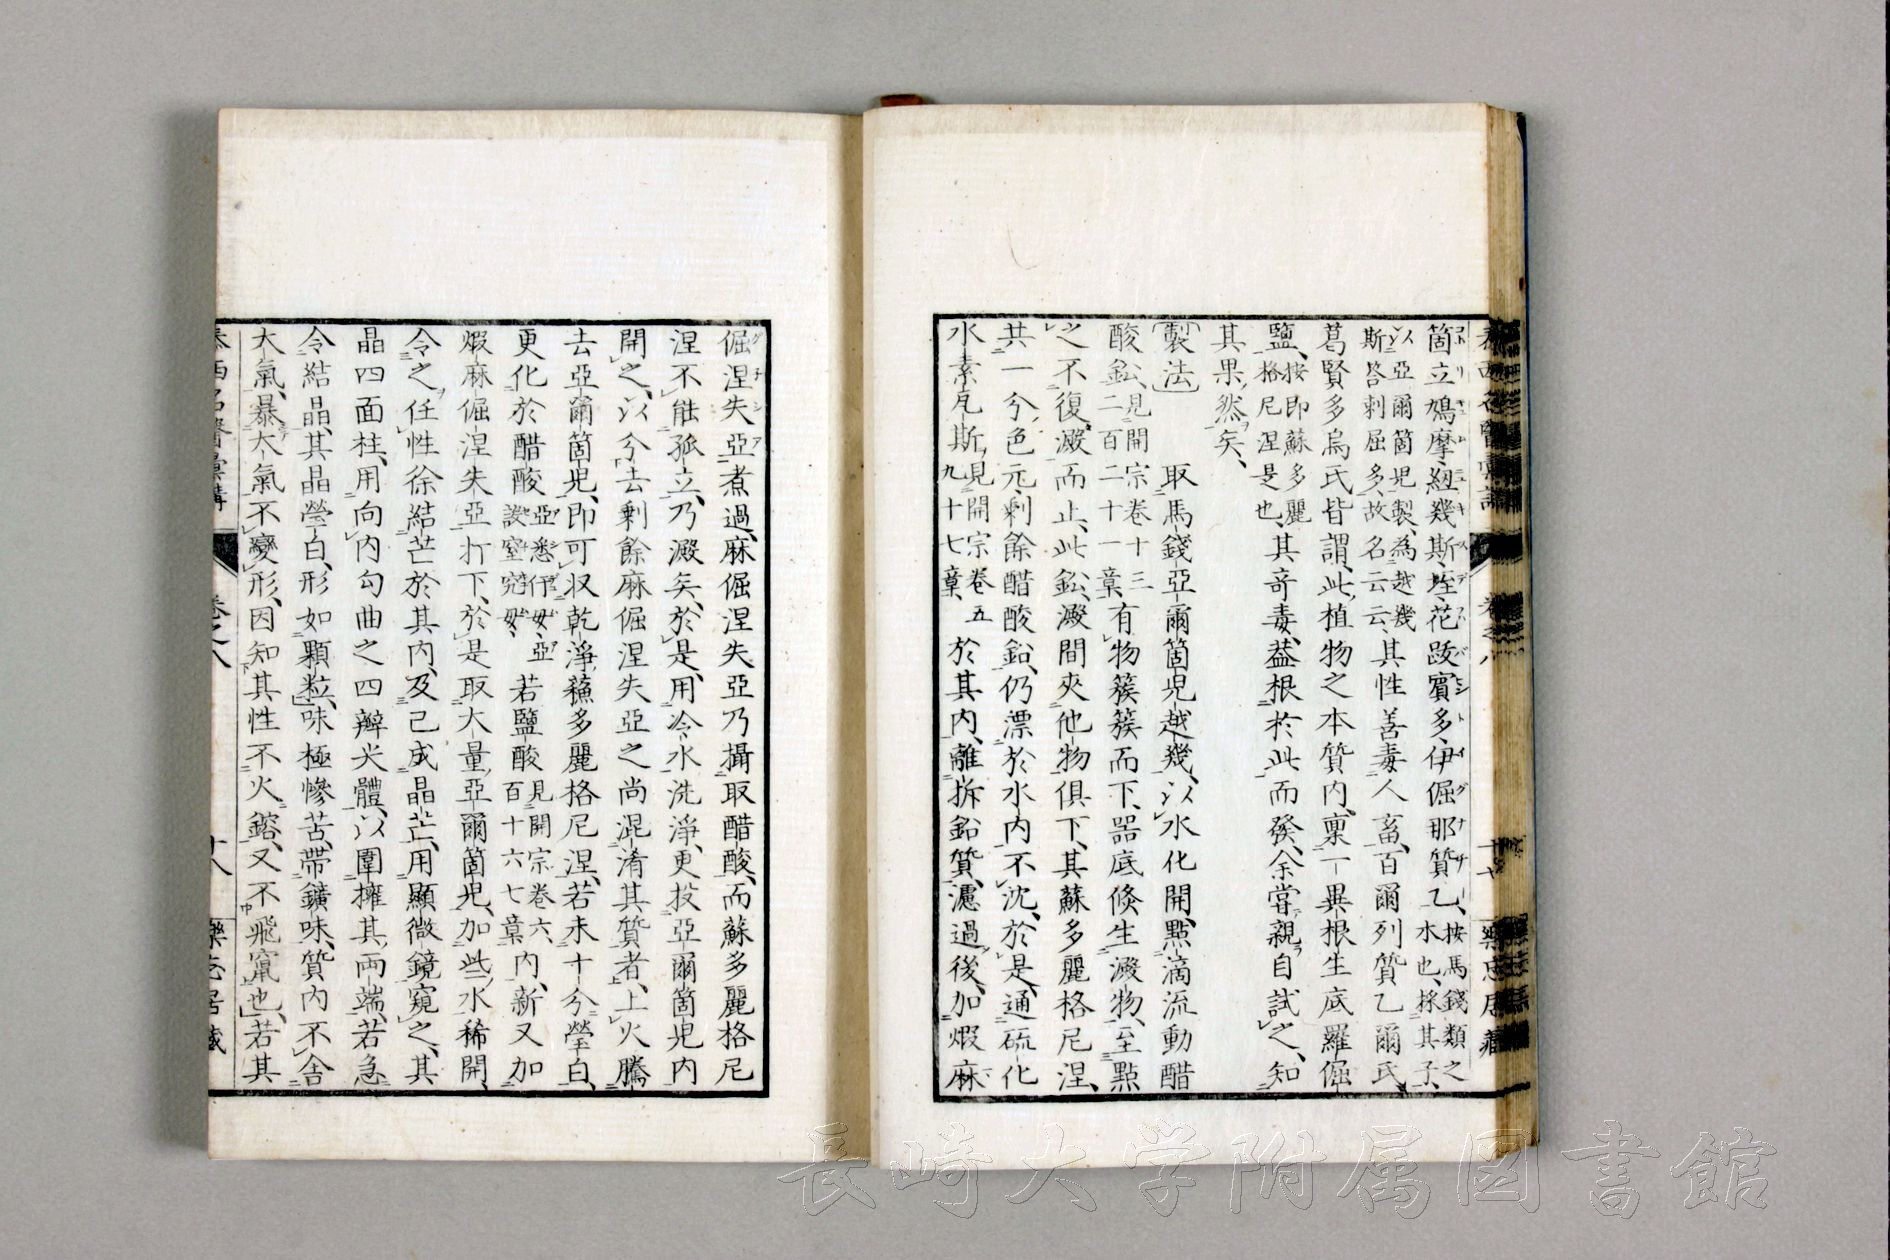 箇立鳩摩紐幾斯垤花跋賓多伊倔那質乙按馬錢類之水也採其子
以亞爾箇児製為越幾斯答刺屈多故名云云其性善毒人畜百爾列質乙爾氏
葛賢多烏氏皆謂此植物之本質内稟一異根生底羅倔
鹽按即蘇多麗格尼涅是也其奇毒葢根於此而發余嘗親自試之知
其果然矣
製法　取馬錢亞爾箇児越幾以水化開點滴流動醋
酸鈆見開宗卷十三二百二十一章有物簇簇而下噐底倏生澱物至點
之不復澱而止此鈆澱間夾他物俱下其蘇多麗格尼涅
共一兮色元剰餘醋酸鉛仍漂於水内不沈於是通硫化
水素瓦斯見開宗卷五九十七章於其内離拆鉛質濾過後加煆麻
倔涅失亞煮過麻倔涅失亞乃攝取醋酸而蘇多麗格尼
涅不能孤立乃澱矣於是用冷水洗淨更投亞爾箇児内
開之以兮去剰餘麻倔涅失亞之尚混淆其質者上火騰
去亞爾箇児即可収乾淨蘓多麗格尼涅若未十兮瑩白
更化於醋酸若鹽酸見開宗卷六百十六七章内新又加
煆麻倔涅失亞打下於是取大量亞爾箇児加些水稀開
令之任性徐結芒於其内及已成晶芒用顯微鏡窺之其
晶四面柱用向内勾曲之四瓣尖體以圍擁其両端若急
令結晶其晶瑩白形如顆粒味極慘苦帶鑛味質内不含
大氣暴大氣不變形因知其性不火鎔又不飛竄也若其
卷之八
長崎大学附属図書館